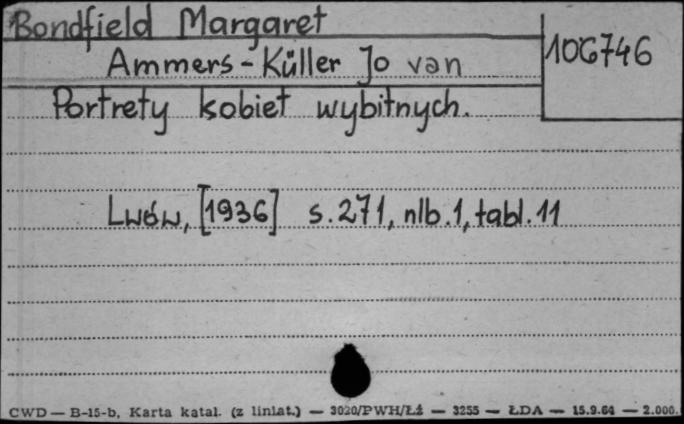 Bondfield Margaret
106746
Ammers-Küller Jo van
Portrety kobiet wybitnych.
Lwów, [1936] s.271, nlb.1, tabl.11
CWD — B-15-b, Karta katal. (z liniat.) — 3020/PWH/Łź — 3255 — ŁDA — 15.9.64 — 2.000.